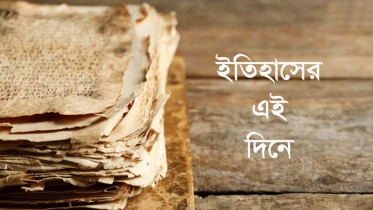 ইতিহাসের
এই
দিনে